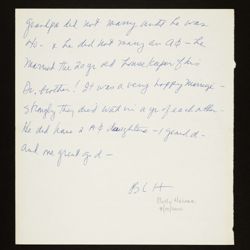 Grandpa did not marry until he was
40 - & he did not marry an A$ - he
married the 20 yr old housekeeper of his
Dr. brother! It was a very happy marriage -
Strangely they died within a yr of each other.
He did have 2 A$ daughters - 1 grand d -
and one great g d -
BLH